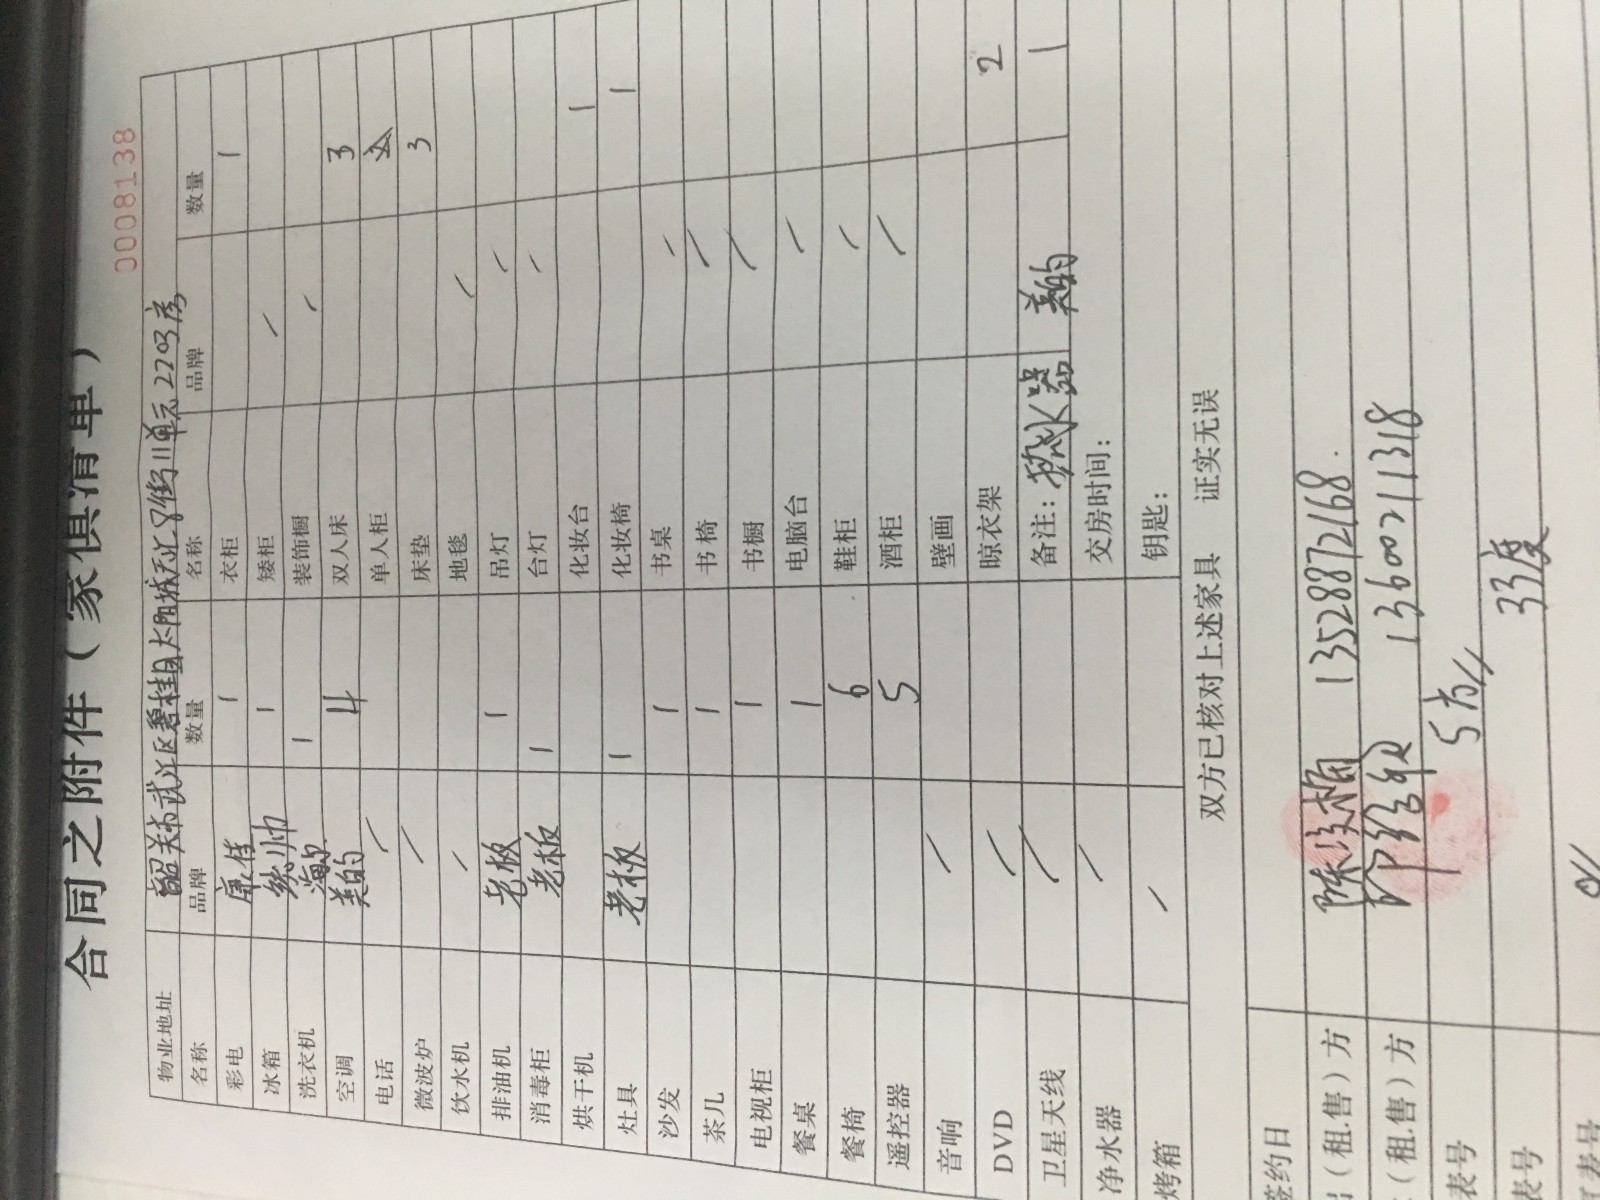 合同之附件（家俱清单）
0008138
物业地址 韶关市武江区碧桂园太阳城天汇8街11单元2203房
名称 品牌 数量 名称 品牌 数量
彩电 康佳 1 衣柜 1
冰箱 统帅 1 矮柜 /
洗衣机 海的 1 装饰橱 /
空调 美的 4 双人床 3
电话 / 单人柜
微波炉 / 床垫 3
饮水机 / 地毯 /
排油机 老板 1 吊灯 /
消毒柜 老板 1 台灯 /
烘干机 化妆台 1
灶具 老板 1 化妆椅 1
沙发 1 书桌 /
茶几 1 书椅 /
电视柜 1 书橱 /
餐桌 1 电脑台 /
餐椅 6 鞋柜 /
遥控器 5 酒柜 /
音响 / 壁画
DVD / 晾衣架 2
卫星天线 / 备注：热水器 美的 1
净水器 / 交房时间：
烤箱 / 钥匙：
双方已核对上述家具 证实无误
签约日
（租.售）方 13528872168.
（租.售）方 13600211318
表号 5方//
表号 33度
表号